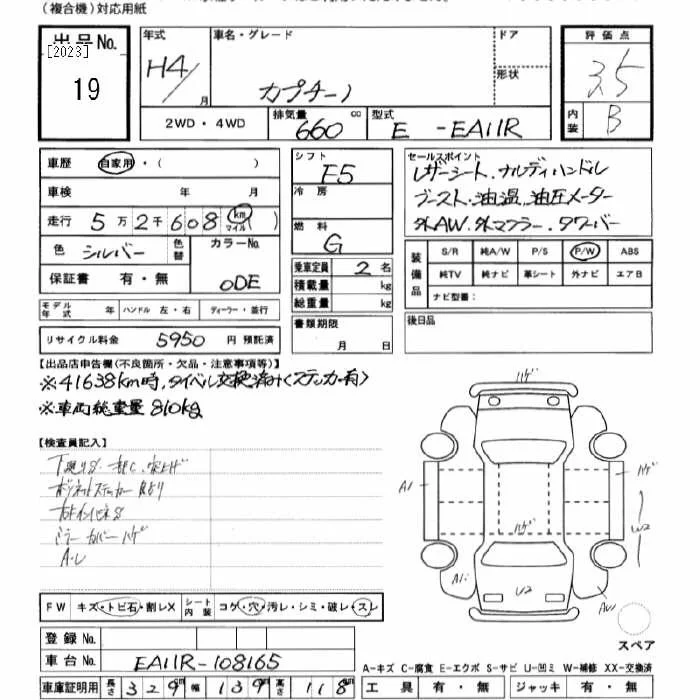 (複合機)対応用紙
出品No.
[2023]
19
年式
H4/
月
車名・グレード
カプチーノ
ドア
形状
評価点
3.5
内装
B
2WD・4WD
排気量
660
cc
型式
E -EA11R
車歴
自家用・( )
車検 年 月
走行 5万2千608 km マイル( )
色 シルバー
色替
カラーNo.
0DE
保証書 有・無
モデル年式 年
ハンドル 左・右
ディーラー・並行
リサイクル料金 5950 円 預託済
シフト
F5
冷房
燃料
G
乗車定員 2 名
積載量 kg
総重量 kg
書類期限
月 日
セールスポイント
レザーシート、ナルディハンドル
ブースト・油温、油圧メーター
外AW、外マフラー、タワーバー
装備品
S/R 純A/W P/S P/W ABS
純TV 純ナビ 革シート 外ナビ エアB
ナビ型番:
後日品
【出品店申告欄(不良箇所・欠品・注意事項等)】
※41638km時、タイベル交換済み<ステッカー有>
※車両総重量 810kg
【検査員記入】
ボンネットステッカー
ミラーカバー ハゲ
FW キズ・トビ石・割レX
シート内装 コゲ・穴・汚レ・シミ・破レ・スレ
登録No.
車台No. EA11R-108165
車庫証明用 長さ 329m 幅 139m 高さ 118m
ハゲ
A1
ハゲ
ハゲ
W2
A1
U2
スペア
A-キズ C-腐食 E-エクボ S-サビ U-凹ミ W-補修 XX-交換済
工具 有・無
ジャッキ 有・無